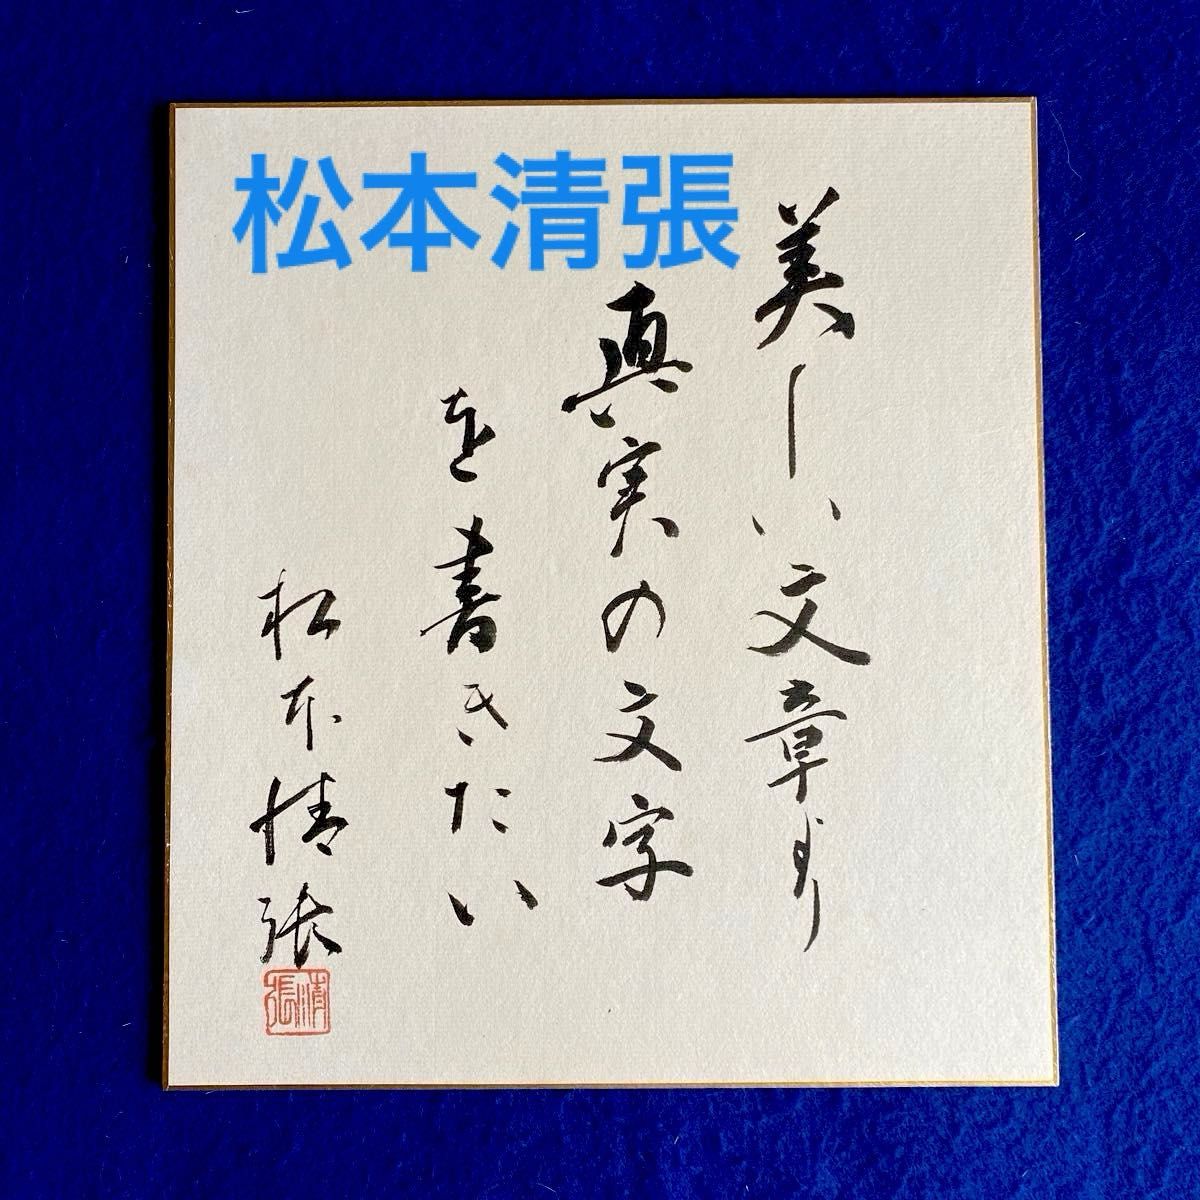 松本清張
美しい文章より
真実の文字
を書きたい
松本清張
清張